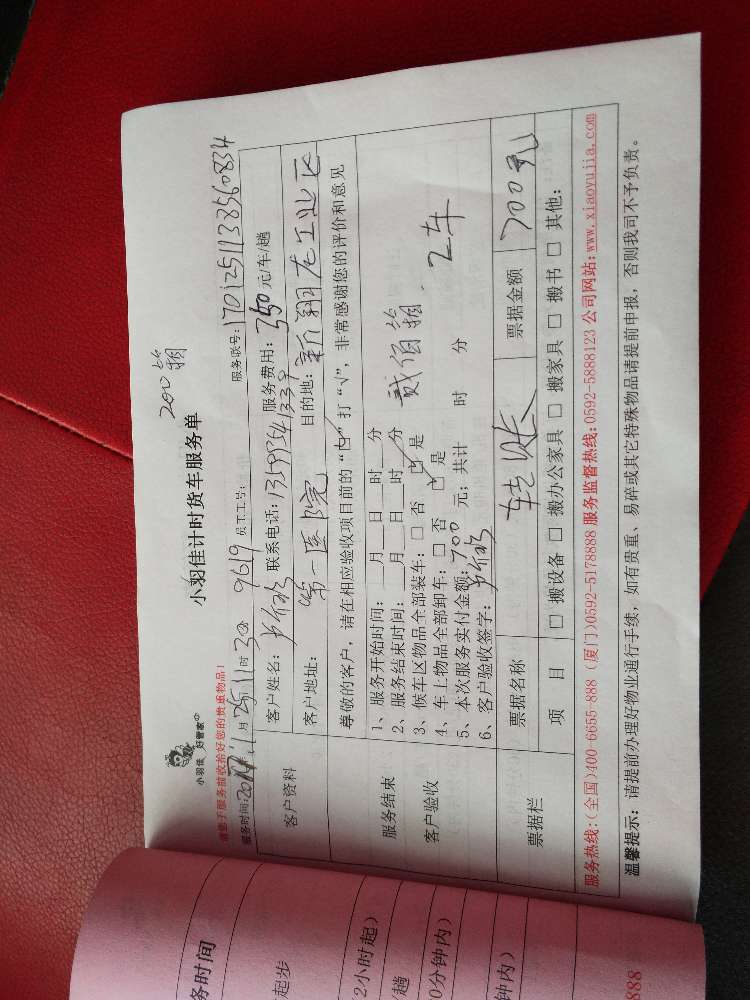 小羽佳 好管家
200箱
小羽佳计时货车服务单
请您于服务前收拾好您的贵重物品!
服务时间: 月25日11时30 9619 员工工号: 服务联号:17012511383560834
客户资料
客户姓名: 联系电话: 服务费用:350元/车/趟
客户地址: 第一医院 目的地:新翔龙工业区
尊敬的客户,请在相应验收项目前的“口”打“√”,非常感谢您的评价和意见
服务结束
客户验收
1、服务开始时间:__月__日__时__分
2、服务结束时间:__月__日__时__分
3、候车区物品全部装车:□ 否 ☑ 是 贰佰箱. 2车
4、车上物品全部卸车:□ 否 ☑ 是
5、本次服务实付金额:700元;共计 时 分
6、客户验收签字:
票据栏
票据名称 转账 票据金额 700元
项 目 □ 搬设备 □ 搬办公家具 □ 搬家具 □ 搬书 □ 其他:
服务热线:(全国)400-6655-888 (厦门)0592-5178888 服务监督热线:0592-5888123 公司网站:www.xiaoyujia.com
温馨提示:请提前办理好物业通行手续,如有贵重、易碎或其它特殊物品请提前申报,否则我司不予负责。
务时间
起步
2小时起)
趟
0分钟内)
钟内)
888